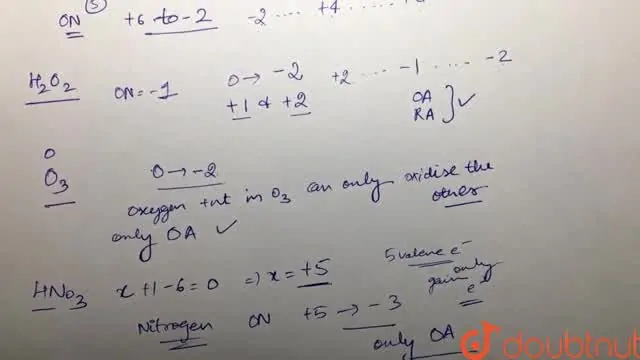 ON S +6 to -2 -2 .... +4 ......
H2O2 ON = -1 0 → -2 +2 ... -1 .... -2
+1 & +2 OA
RA } ✓
0
O3 0 → -2
oxygen +nt in O3 can only oxidise the
others
only OA ✓
HNO3 x+1-6=0 => x = +5 5 valence e-
only
gain e-
Nitrogen ON +5 → -3
only OA
doubtnut